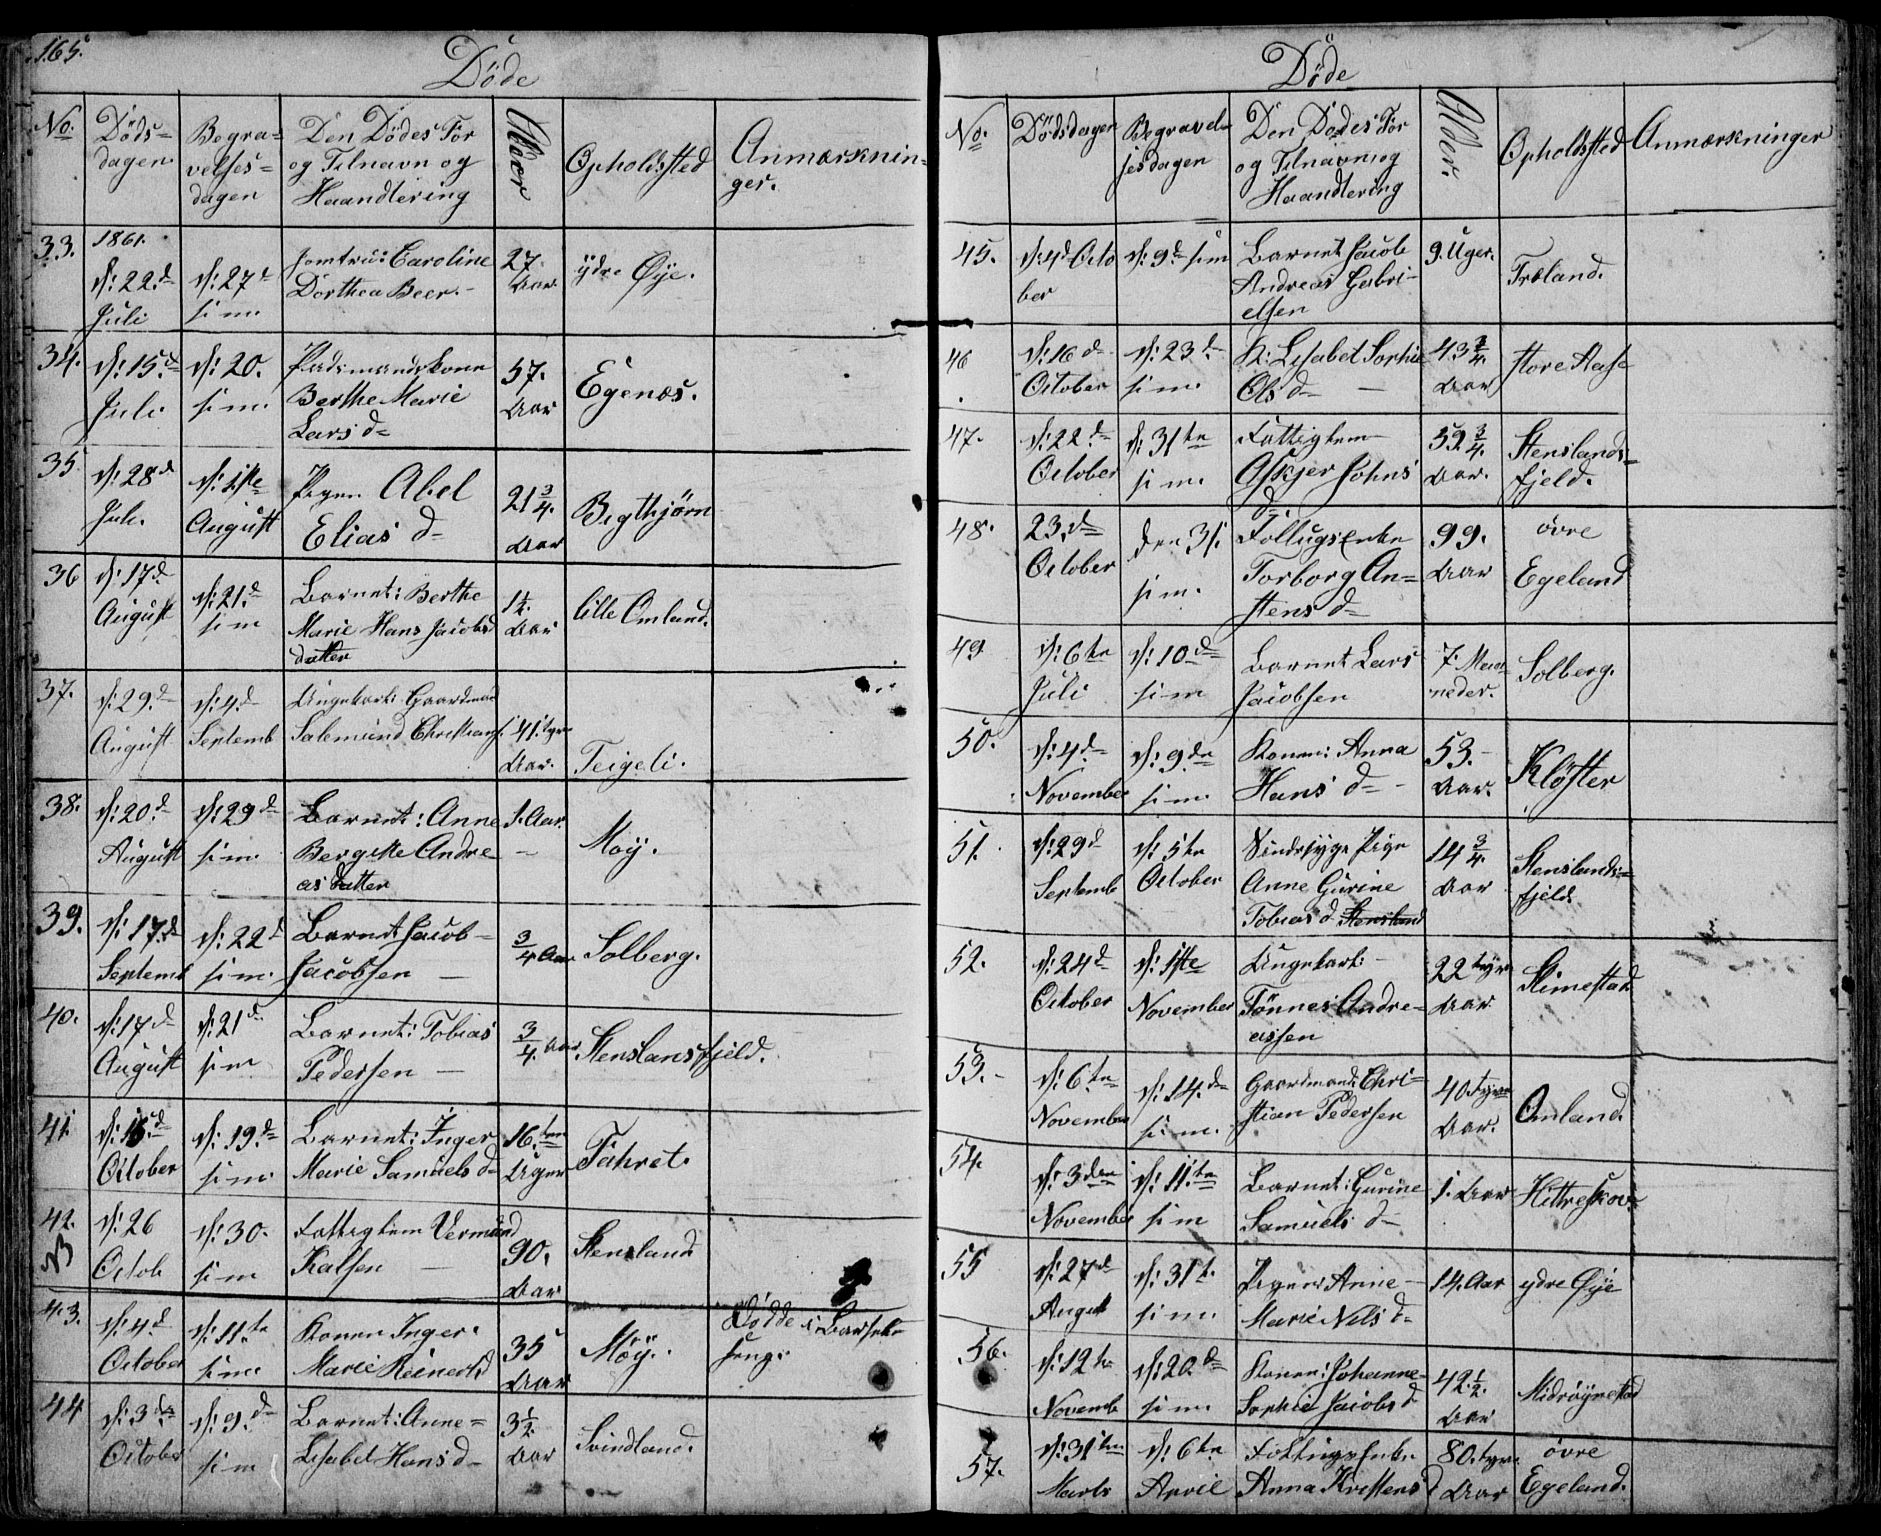 165.
Døde
No.
Døds-
dagen
Begra-
velses-
dagen
Den Dødes For
og Tilnavn og
Haandtering
Alder
Opholdssted
Anmærknin-
ger.
33.
1861.
d: 22d
Juli
d: 27
s: m.
Jomfru: Caroline
Dorthea Beer.
27
Aar
ydre Øye.
34.
d: 15d
Juli
d: 20.
s: m.
Berthe Marie
Lars d-
57.
Aar
Egenæs.
35
d: 28d
Juli
d: 1ste
August
Pigen Abel
Elias d-
21 3/4.
Aar
Bigthjørn
36
d: 17d
August
d: 21.d
s: m
Barnet: Berthe
Marie Hans Jacobs
datter
1 1/2.
Aar
lille Omland.
37.
d: 29.d
August
d: 4.d
Septemb
Ungekarl: Gaardmand
Salemund Christians.
41. tyve
Aar.
Teigeli.
38.
d: 20.d
August
d: 29d
s: m.
Barnet: Anne
Bergitte Andre-
as datter
1. Aar.
Moÿ.
39.
d: 17.d
Septemb
d: 22d
s: m.
Barnet Jacob
Jacobsen
3/4 Aar
Solberg.
40.
d: 17d
August
d: 21d
s: m
Barnet: Tobias
Pedersen
3/4. Aar
Stenslansfjeld.
41
October
d: 19.d
s: m
Barnet: Inger
Marie Samuels d-
16.ten
Uger
Fahret.
42.
NB
d: 26
Octob
d: 30.
s: m
Fattiglem Vermund
Kalsen
90.
Aar
Stensland
43.
d: 4.d
October
d: 11.te
s: m.
Konen Inger
Marie Reinerts d
35
Aar
Moÿ.
Dødde i Barsel-
seng.
44
October
d: 9.d
s: m
Barnet: Anne
Lisabet Hans d-
3 1/2.
Aar
Svindland.
Døde
No.
Dødsdagen
Begravel-
sesdagen
Den Dødes For
og Tilnavn og
Haandtering
Alder.
Opholdssted
Anmærkninger
45.
d: 4d Octo
ber
d: 9d s: m
Barnet Jacob
Andreas Gabri-
elsen
9. Uger.
Træland.
46
d: 16d
October
d: 23d
s: m.
K: Lisabet Sophie
Ols d-
43 3/4.
Aar
store Aase
47.
d: 22.d
October
d: 31te
s: m.
Fattiglem
Johns
d-
59 3/4.
Aar.
Stenslands-
fjeld.
48.
23.d
October
den 31.
s: m.
Torborg An-
stens d-
99.
Aar
øvre
Egeland
49
d: 6te
Juli
d: 10d
s: m
Barnet Lars
Jacobsen
7. Maa-
neder.
Solberg.
50.
d: 4d
November
d: 9.de
s: m.
Konen: Anna
Hans d-
53.
Aar.
Kløfter
51.
d: 29d
Septemb
d: 5te
October
Sindssyge Pige
Anne Gurine
Tobias d. Stensland
14 3/4.
Aar
Stenslands-
fjeld
52.
d: 24d
October
d: 1ste
November
Ungekarl:
Tønnes Andre-
assen
22 tyve
Aar
Stimestad
53.
d: 6te
November
d: 14.de
s: m.
Gaardmand: Chri-
stian Pedersen
40. tyve
Aar.
Omland.
54.
d: 3den
November
d: 11.te
s: m
Barnet: Gurine
Samuels d-
1. Aar
Hittreskov
55
d: 27d
August
d: 31t.
s: m.
Pigen: Anne
Marie Nils d-
14. Aar
ydre Øÿe
56.
d: 12te
Novemb
d: 20.d
s: m.
Konen: Johanne
Sophie Jacobs d
42 1/2.
Aar
57.
d: 31te
Marts
d: 6te
April
Anna Kristens d
80. tyve
Aar
øvre
Egeland.